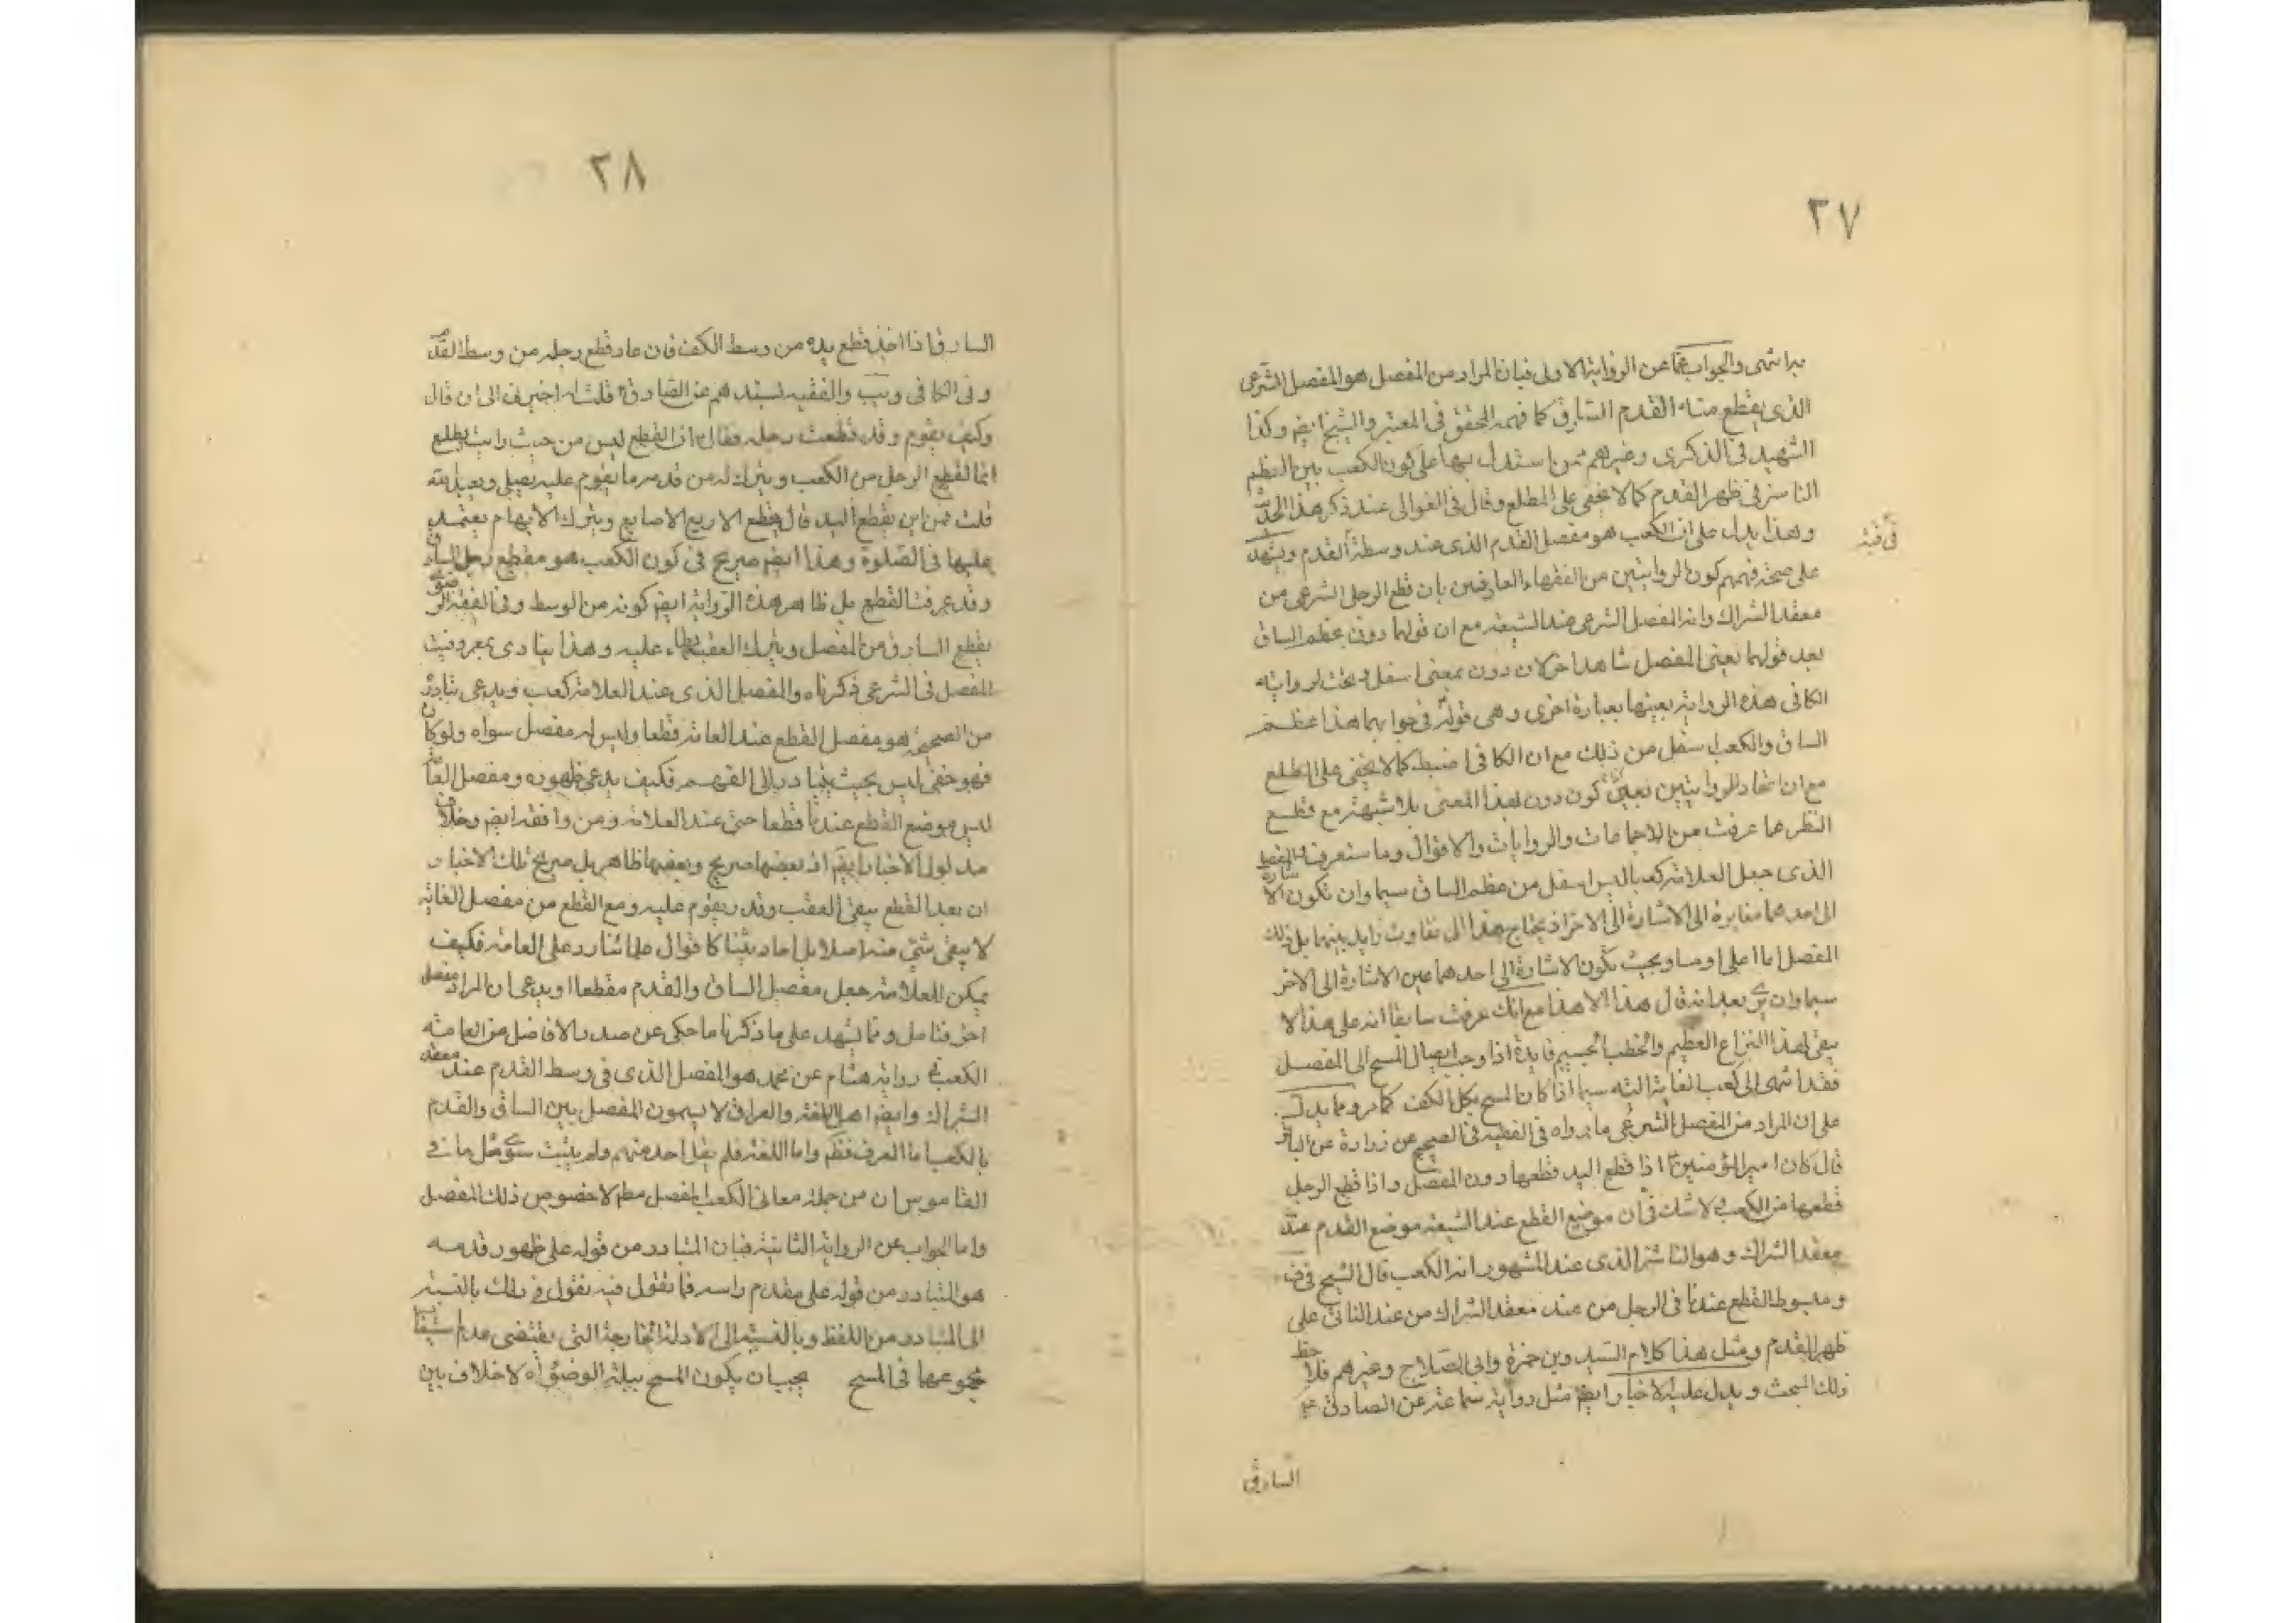 ٢٧
براسه انتهى والجواب عما عن الرواية الاولى فبان المراد من المفصل هو المفصل الشرعى
الذى يقطع منه القدم السارق كما فهمه المحقق فى المعتبر والشيخ ايضم وكذا
الشهيد فى الذكرى وغيرهم ممن استدل بها على كون الكعب بين العظم
الناشز فى ظهر القدم كما لا يخفى على المطلع وقال فى الغوالى عند ذكر هذا الحديث
وهذا يدل على ان الكعب هو مفصل القدم الذى عند وسطة القدم ويشهد
على صحة فهمهم كون الروايتين من الفقهاء العارفين بان قطع الرجل الشرعى من
معقد الشراك وانه المفصل الشرعى عند الشيعة مع ان قولهما دون عظم الساق
بعد قولهما يعنى المفصل شاهد اخر لان دون بمعنى اسفل وتحت لرواية
الكافى هذه الرواية بعينها بعبارة اخرى وهى قوله فى جوابهما هذا عظم
الساق والكعب اسفل من ذلك مع ان الكافى اضبط كما لا يخفى على المطلع
مع ان اتحاد الروايتين يعين كون دون بهذا المعنى بلا شبهة مع قطع
النظر عما عرفت من الاجماعات والروايات والاقوال وما ستعرف والمفصل
الذى جعل العلامة كعبا ليس اسفل من عظم الساق سيما وان تكون الاشارة
الى احدهما مغايرة الى الاشارة الى الاخر اذ يحتاج هذا الى تفاوت زايد بينهما بل ذلك
المفصل اما اعلى او مساو بحيث تكون الاشارة الى احدهما عين الاشارة الى الاخر
سيما وان بعد انه قال هذا الا هذا مع انك عرفت سابقا انه على هذا لا
يبقى لهذا النزاع العظيم والخطب الجسيم فايدة اذا وجب ايصال المسح الى المفصل
فقد انتهى الى كعب العامة البته سيما اذا كان المسح بكل الكف كما مر ومما يدل
على ان المراد من المفصل الشرعى ما رواه فى الفقيه فى الصحيح عن زرارة عن الباقر
قال كان امير المؤمنين ع اذا قطع اليد قطعها دون المفصل واذا قطع الرجل
قطعها من الكعب ولا شك فى ان موضع القطع عند الشيعة موضع القدم عند
معقد الشراك وهو الناشز الذى عند المشهور انه الكعب قال الشيخ فى ف
ومبسوط القطع عندنا فى الرجل من عند معقد الشراك من عند الناتئ على
ظهر القدم ومثل هذا كلام السيد وبن حمزة وابى الصلاح وغيرهم فلاحظ
ذلك المبحث ويدل عليه الاخبار ايضم مثل رواية سماعة عن الصادق ع
السارق
٢٨
السارق اذا اخذ قطع يده من وسط الكف فان عاد قطع رجله من وسط القدم
وفى الكافى ويب والفقيه بسندهم عن الصادق ع قلت له اخبرنى الى ان قال
وكيف يقوم وقد قطعت رجله فقال ان القطع ليس من حيث رايت يقطع
انما تقطع الرجل من الكعب ويترك له من قدمه ما يقوم عليه يصلى ويعبد الله
قلت من اين يقطع اليد قال يقطع الاربع الاصابع ويترك الابهام يعتمد
عليها فى الصلوة وهذا ايضم صريح فى كون الكعب هو مقطع رجل السارق
وقد عرفت القطع بل ظاهر هذه الرواية ايضم كونه من الوسط وفى الفقه الرضوى
يقطع السارق من المفصل ويترك العقب يطاء عليه وهذا ينادى بمعروفية
المفصل فى الشرعى ذكرناه والمفصل الذى عند العلامة كعب ويدعى تبادره
من الصحيحة هو مفصل القطع عند العامة قطعا وليس له مفصل سواه ولو كان
فهو خفى ليس بحيث يتبادر الى الفهم فكيف يدعى ظهوره ومفصل العامة
ليس موضع القطع عندنا قطعا حتى عند العلامة ومن وافقه ايضم وخلاف
مدلول الاخبار ايضم اذ بعضها صريح وبعضها ظاهر بل صريح تلك الاخبار
ان بعد القطع يبقى العقب وقدر يقوم عليه ومع القطع من مفصل العامة
لا يبقى شئ منه اصلا بل احاديثنا كاقوال علمائنا رد على العامة فكيف
يمكن للعلامة جعل مفصل الساق والقدم مقطعا او يدعى ان المراد مفصل
اخر فتامل ومما يشهد على ما ذكرنا ما حكى عن صدر الافاضل من العامة
الكعب فى رواية هشام عن محمد هو المفصل الذى فى وسط القدم عند معقد
الشراك وايضم اهل اللغة والعراق لا يسمون المفصل بين الساق والقدم
بالكعب اما العرف فظم واما اللغة فلم يقل احد منهم ولم يثبت سوى مثل ما فى
القاموس ان من جملة معانى الكعب المفصل مطم لا خصوص ذلك المفصل
واما الجواب عن الرواية الثانية فبان المتبادر من قوله على ظهور قدمه
هو المتبادر من قوله على مقدم راسه فما تقول فيه نقول فى ذلك بالنسبة
الى المتبادر من اللفظ وبالنسبة الى الادلة الخارجة التى يقتضى عدم استيعاب
مجموعها فى المسح يجب ان يكون المسح ببلة الوضوء اه لا خلاف بين